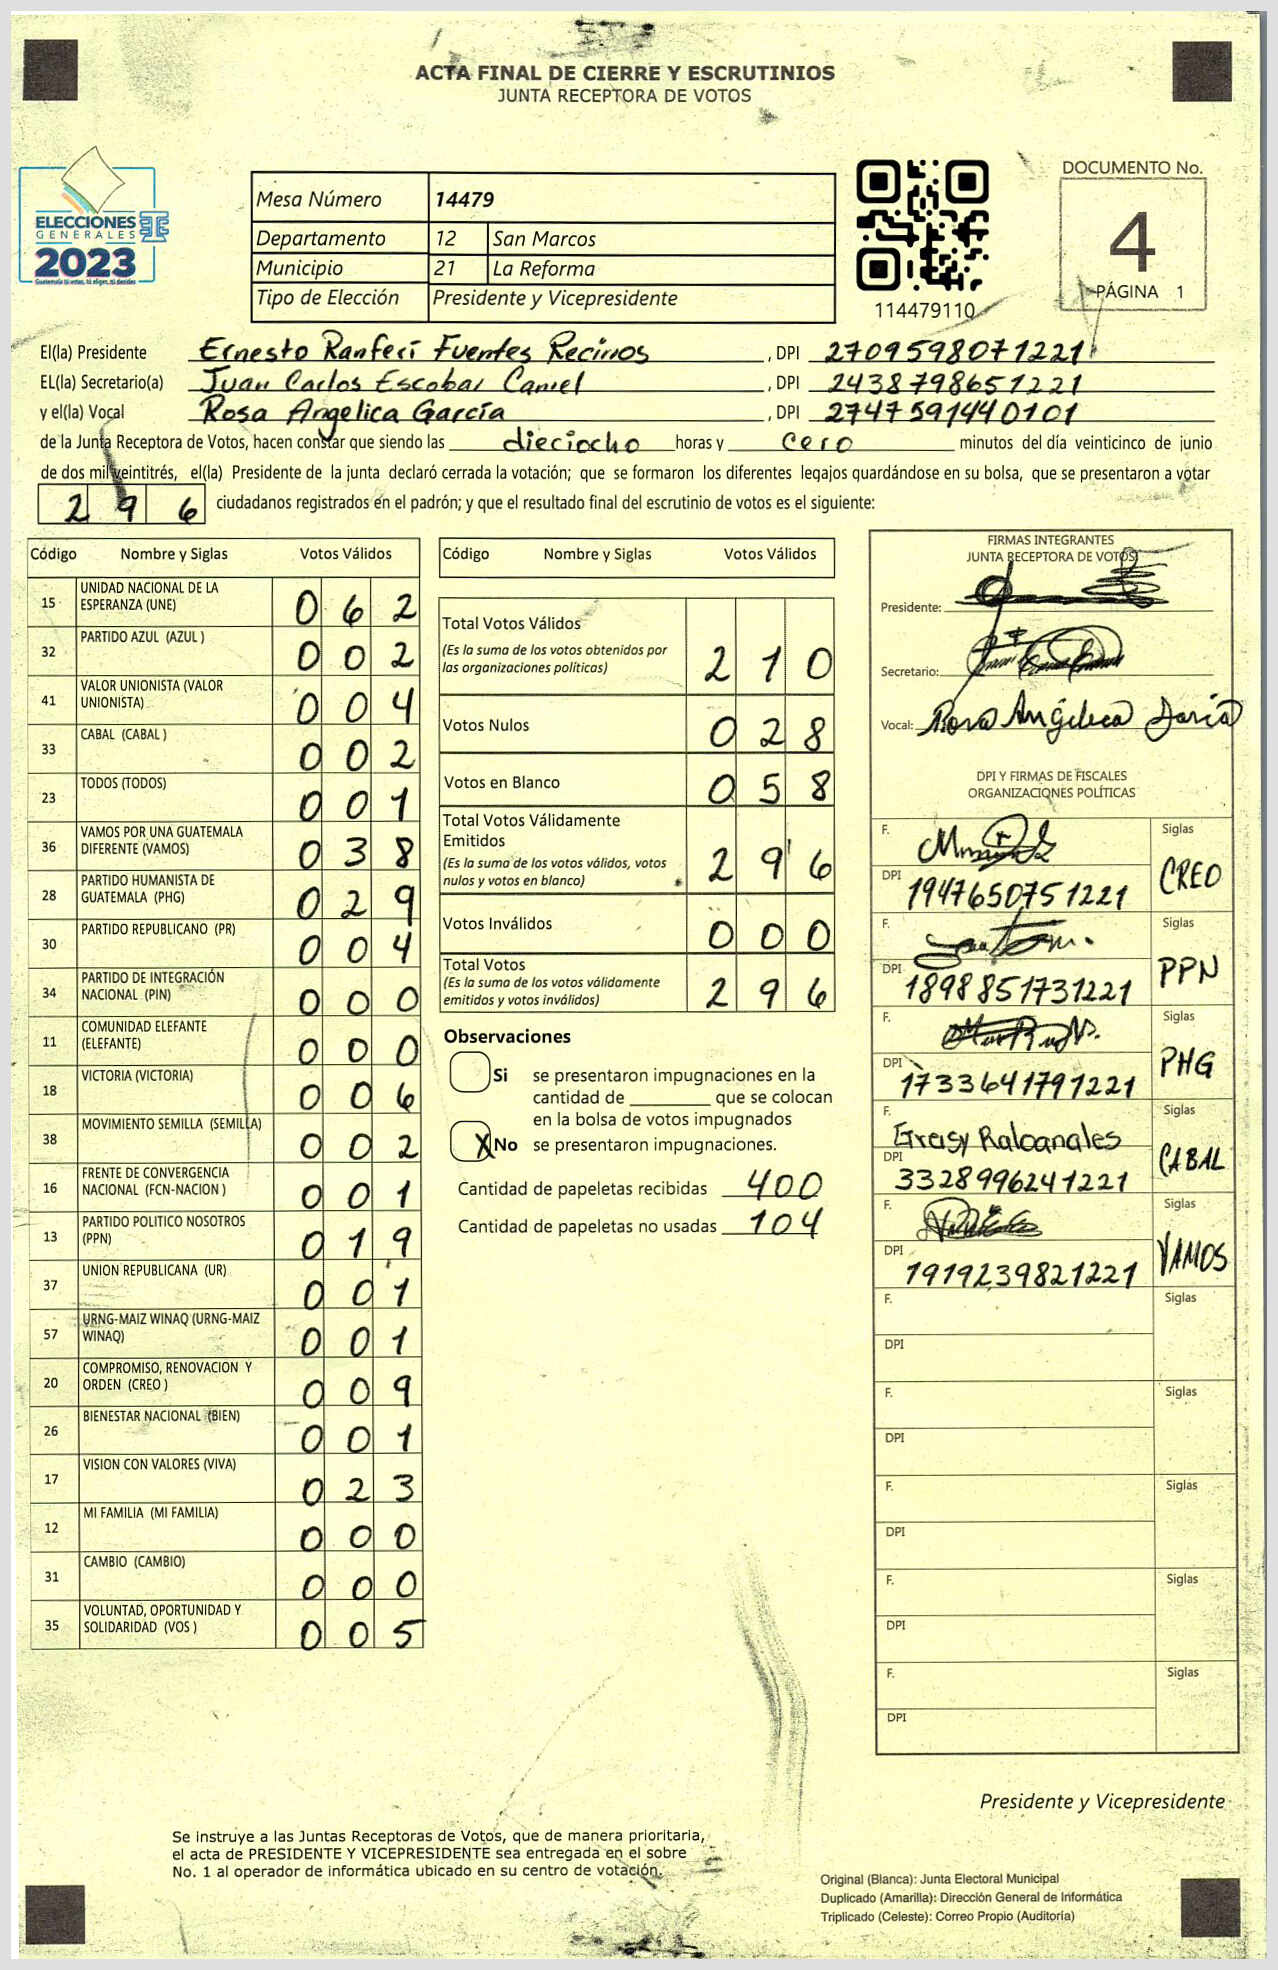 ACTA FINAL DE CIERRE Y ESCRUTINIOS
JUNTA RECEPTORA DE VOTOS
ELECCIONES
GENERALES
2023
Guatemala tú votas, tú eliges, tú decides
Mesa Número 14479
Departamento 12 San Marcos
Municipio 21 La Reforma
Tipo de Elección Presidente y Vicepresidente
114479110
DOCUMENTO No.
4
PÁGINA 1
El(la) Presidente Ernesto Ranferí Fuentes Recinos, DPI 2709598071221
EL(la) Secretario(a) Juan Carlos Escobar Caniel, DPI 2438798651221
y el(la) Vocal Rosa Angelica García, DPI 2747591440101
de la Junta Receptora de Votos, hacen constar que siendo las dieciocho horas y cero minutos del día veinticinco de junio
de dos mil veintitrés, el(la) Presidente de la junta declaró cerrada la votación; que se formaron los diferentes legajos quardándose en su bolsa, que se presentaron a votar
296 ciudadanos registrados en el padrón; y que el resultado final del escrutinio de votos es el siguiente:
Código Nombre y Siglas Votos Válidos
15 UNIDAD NACIONAL DE LA ESPERANZA (UNE) 062
32 PARTIDO AZUL (AZUL ) 002
41 VALOR UNIONISTA (VALOR UNIONISTA) 004
33 CABAL (CABAL ) 002
23 TODOS (TODOS) 001
36 VAMOS POR UNA GUATEMALA DIFERENTE (VAMOS) 038
28 PARTIDO HUMANISTA DE GUATEMALA (PHG) 029
30 PARTIDO REPUBLICANO (PR) 004
34 PARTIDO DE INTEGRACIÓN NACIONAL (PIN) 000
11 COMUNIDAD ELEFANTE (ELEFANTE) 000
18 VICTORIA (VICTORIA) 006
38 MOVIMIENTO SEMILLA (SEMILLA) 002
16 FRENTE DE CONVERGENCIA NACIONAL (FCN-NACION ) 001
13 PARTIDO POLITICO NOSOTROS (PPN) 019
37 UNION REPUBLICANA (UR) 001
57 URNG-MAIZ WINAQ (URNG-MAIZ WINAQ) 001
20 COMPROMISO, RENOVACION Y ORDEN (CREO ) 009
26 BIENESTAR NACIONAL (BIEN) 001
17 VISION CON VALORES (VIVA) 023
12 MI FAMILIA (MI FAMILIA) 000
31 CAMBIO (CAMBIO) 000
35 VOLUNTAD, OPORTUNIDAD Y SOLIDARIDAD (VOS ) 005
Código Nombre y Siglas Votos Válidos
Total Votos Válidos 210
(Es la suma de los votos obtenidos por
las organizaciones políticas)
Votos Nulos 028
Votos en Blanco 058
Total Votos Válidamente
Emitidos 296
(Es la suma de los votos válidos, votos
nulos y votos en blanco)
Votos Inválidos 000
Total Votos 296
(Es la suma de los votos válidamente
emitidos y votos inválidos)
Observaciones
Si se presentaron impugnaciones en la
cantidad de ________ que se colocan
en la bolsa de votos impugnados
X No se presentaron impugnaciones.
Cantidad de papeletas recibidas 400
Cantidad de papeletas no usadas 104
FIRMAS INTEGRANTES
JUNTA RECEPTORA DE VOTOS
Presidente:
Secretario:
Vocal: Rosa Angelica García
DPI Y FIRMAS DE FISCALES
ORGANIZACIONES POLÍTICAS
F. Siglas
DPI 1947650751221 CREO
F. Siglas
DPI 1898851731221 PPN
F. Siglas
DPI 1733641791221 PHG
F. Siglas
DPI 3328996241221 CABAL
F. Siglas
DPI 1919239821221 VAMOS
F. Siglas
DPI
F. Siglas
DPI
F. Siglas
DPI
F. Siglas
DPI
F. Siglas
DPI
Presidente y Vicepresidente
Se instruye a las Juntas Receptoras de Votos, que de manera prioritaria,
el acta de PRESIDENTE Y VICEPRESIDENTE sea entregada en el sobre
No. 1 al operador de informática ubicado en su centro de votación.
Original (Blanca): Junta Electoral Municipal
Duplicado (Amarilla): Dirección General de Informática
Triplicado (Celeste): Correo Propio (Auditoría)